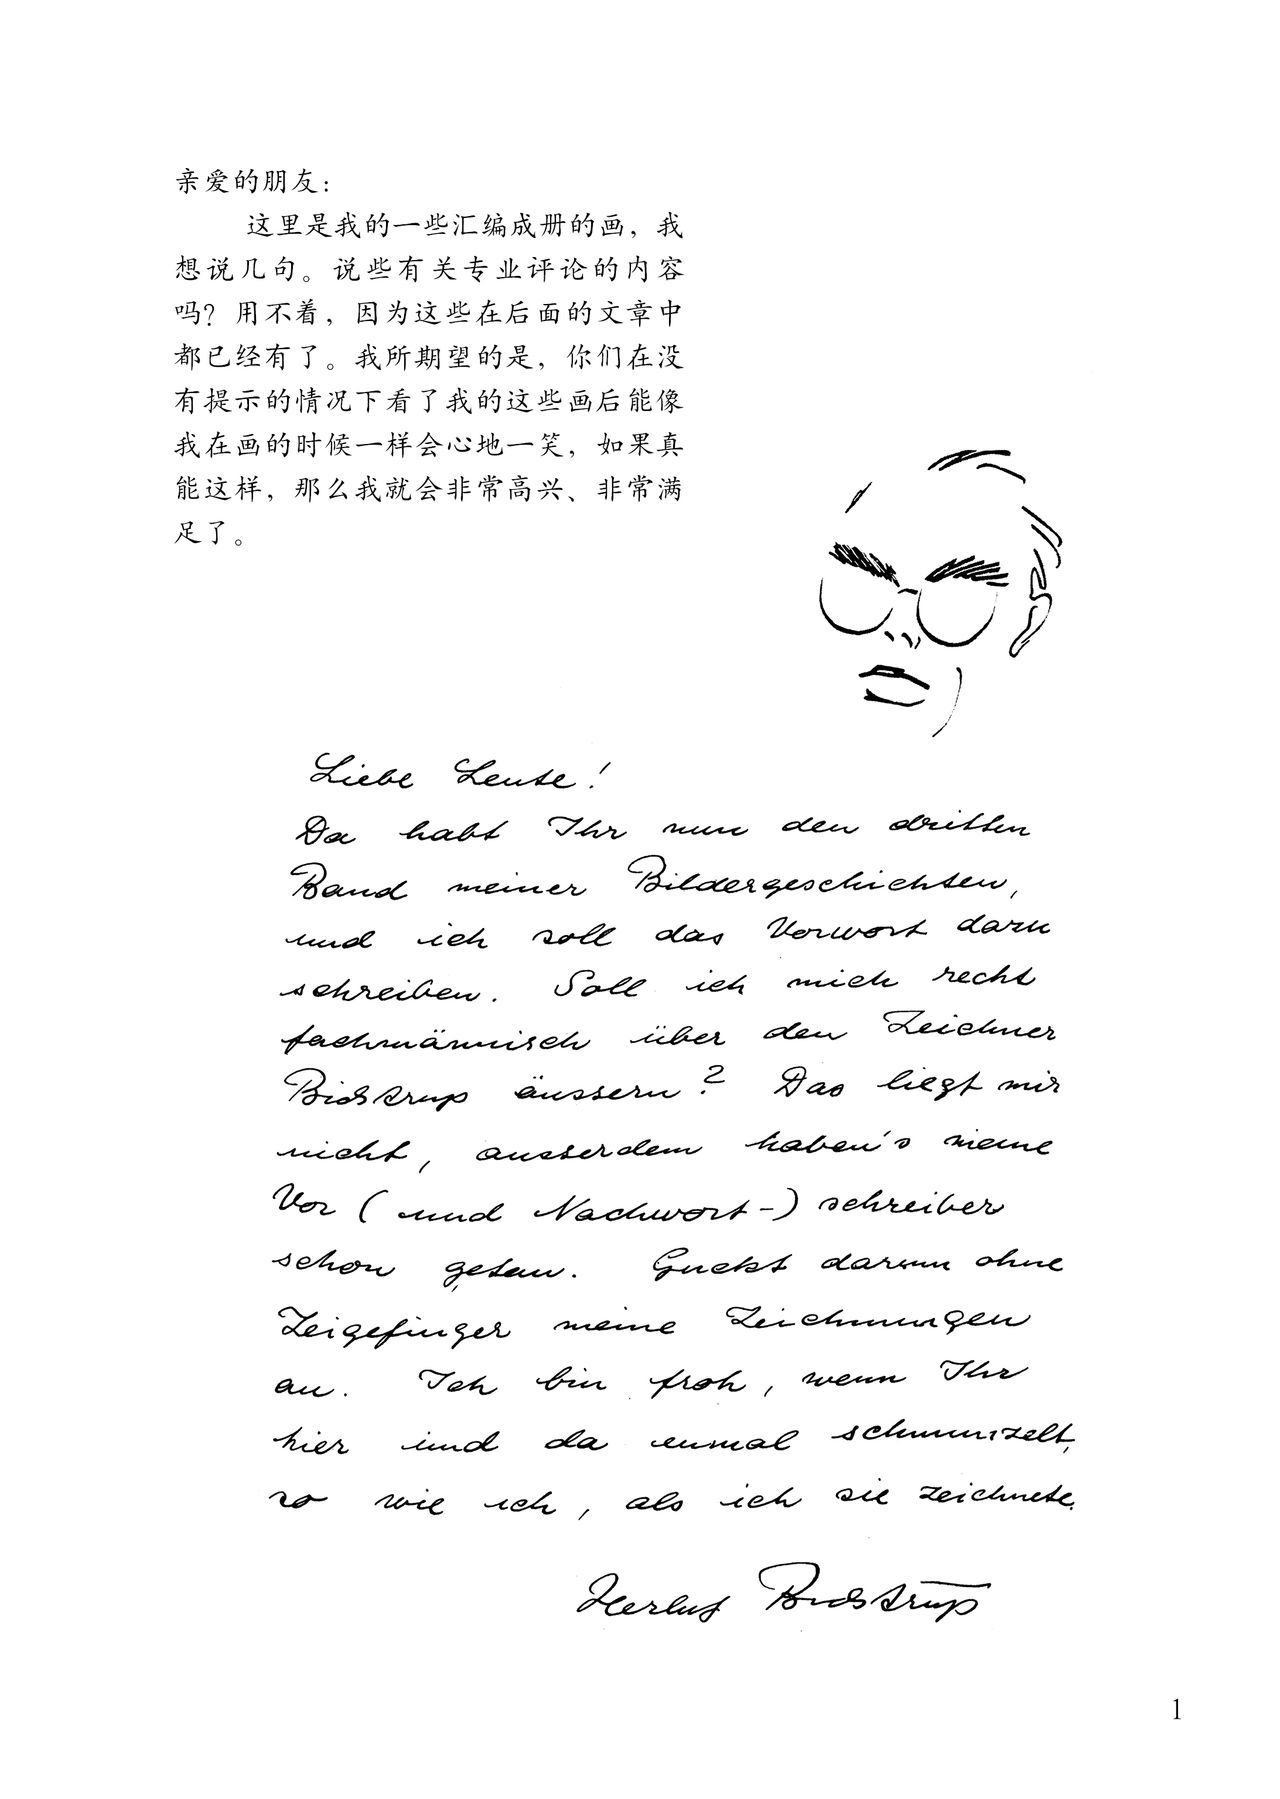 亲爱的朋友：
这里是我的一些汇编成册的画，我
想说几句。说些有关专业评论的内容
吗？用不着，因为这些在后面的文章中
都已经有了。我所期望的是，你们在没
有提示的情况下看了我的这些画后能像
我在画的时候一样会心地一笑，如果真
能这样，那么我就会非常高兴、非常满
足了。
Liebe Leute!
Da habt Ihr nun den dritten
Band meiner Bildergeschichten,
und ich soll das Vorwort dazu
schreiben. Soll ich mich recht
fachmännisch über den Zeichner
Bidstrup äussern? Das liegt mir
nicht, ausserdem haben's meine
Vor (und Nachwort-) schreiber
schon getan. Guckt darum ohne
Zeigefinger meine Zeichnungen
an. Ich bin froh, wenn Ihr
hier und da einmal schmunzelt,
so wie ich, als ich sie zeichnete.
Herluf Bidstrup
1